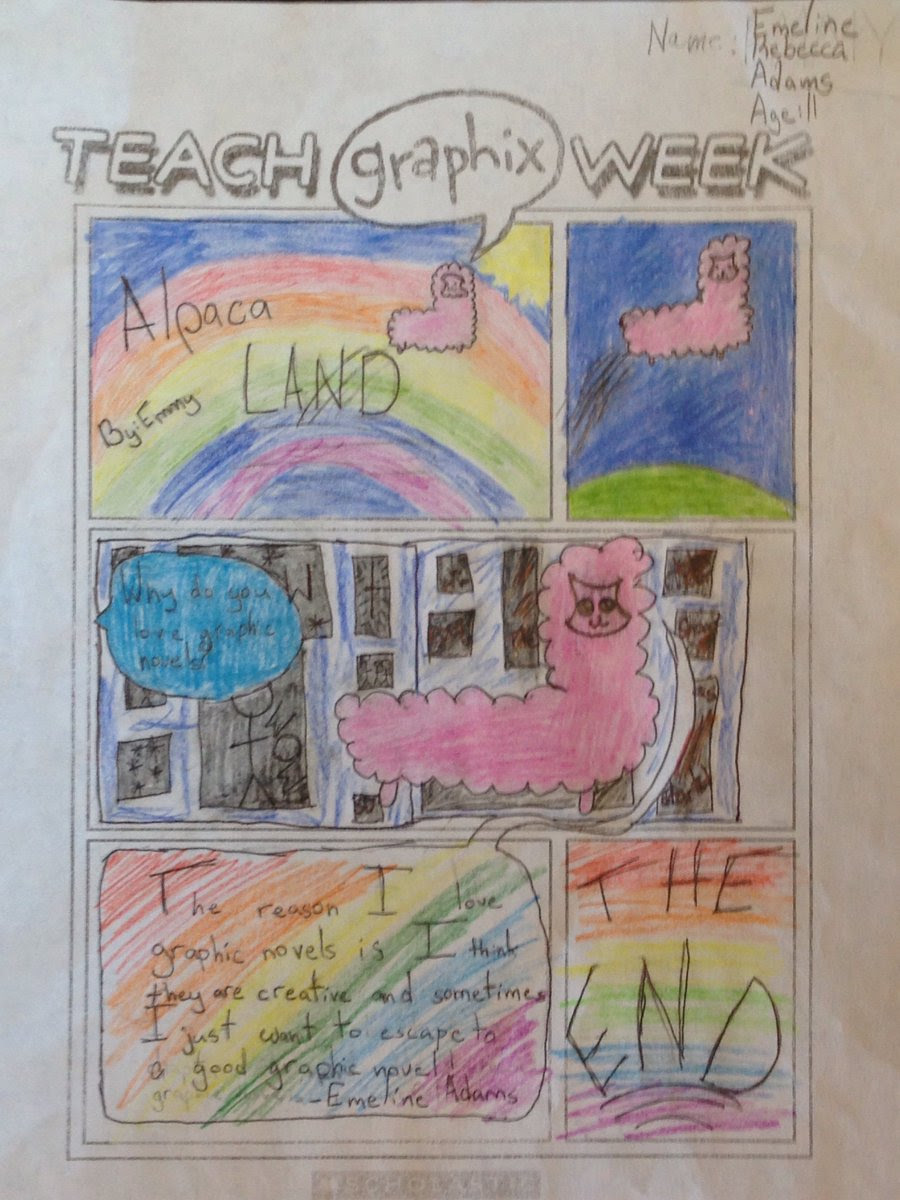 Name: Emeline
Rebecca
Adams
Age: 11
TEACH graphix WEEK
Alpaca
LAND
By: Emmy
Why do you
love graphic
novels?
The reason I love
graphic novels is I think
they are creative and sometimes
I just want to escape to
a good graphic novel!
- Emeline Adams
THE
END
SCHOLASTIC